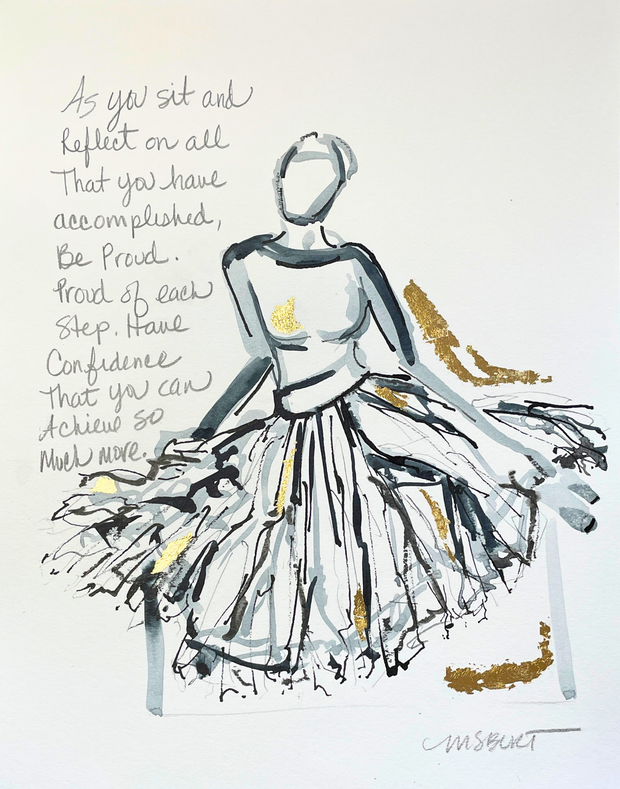 As you sit and
Reflect on all
That you have
accomplished,
Be Proud.
Proud of each
Step. Have
Confidence
That you can
Achieve so
Much more.